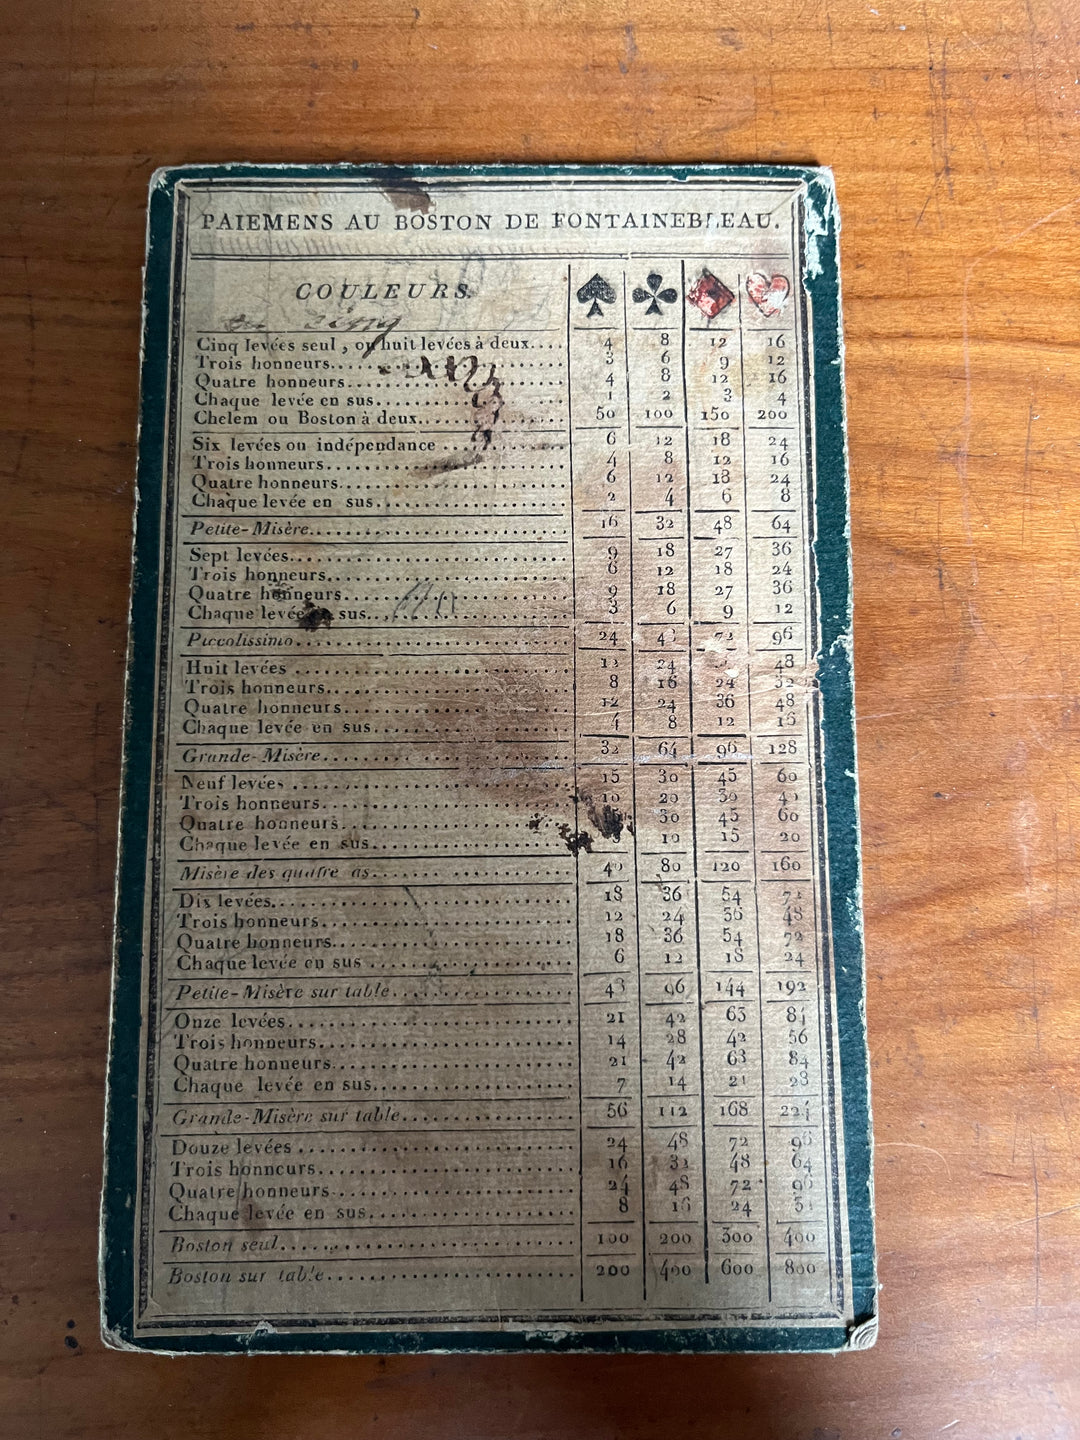 PAIEMENS AU BOSTON DE FONTAINEBLEAU.
COULEURS.
Cinq levées seul, ou huit levées à deux.... 4 8 12 16
Trois honneurs........ 3 6 9 12
Quatre honneurs........ 4 8 12 16
Chaque levée en sus........ 1 2 3 4
Chelem ou Boston à deux........ 50 100 150 200
Six levées ou indépendance........ 6 12 18 24
Trois honneurs........ 4 8 12 16
Quatre honneurs........ 6 12 18 24
Chaque levée en sus........ 2 4 6 8
Petite-Misère........ 16 32 48 64
Sept levées........ 9 18 27 36
Trois honneurs........ 6 12 18 24
Quatre honneurs........ 9 18 27 36
Chaque levée en sus........ 3 6 9 12
Piccolissimo........ 24 48 72 96
Huit levées........ 12 24 48
Trois honneurs........ 8 16 24 32
Quatre honneurs........ 12 24 36 48
Chaque levée en sus........ 4 8 12 16
Grande-Misère........ 32 64 96 128
Neuf levées........ 15 30 45 60
Trois honneurs........ 10 20 30 40
Quatre honneurs........ 30 45 60
Chaque levée en sus........ 10 15 20
Misère des quatre as........ 40 80 120 160
Dix levées........ 18 36 54 72
Trois honneurs........ 12 24 36 48
Quatre honneurs........ 18 36 54 72
Chaque levée en sus........ 6 12 18 24
Petite-Misère sur table........ 48 96 144 192
Onze levées........ 21 42 63 84
Trois honneurs........ 14 28 42 56
Quatre honneurs........ 21 42 63 84
Chaque levée en sus........ 7 14 21 28
Grande-Misère sur table........ 56 112 168 224
Douze levées........ 24 48 72 96
Trois honneurs........ 16 32 48 64
Quatre honneurs........ 24 48 72 96
Chaque levée en sus........ 8 16 24
Boston seul........ 100 200 300 400
Boston sur table........ 200 400 600 800